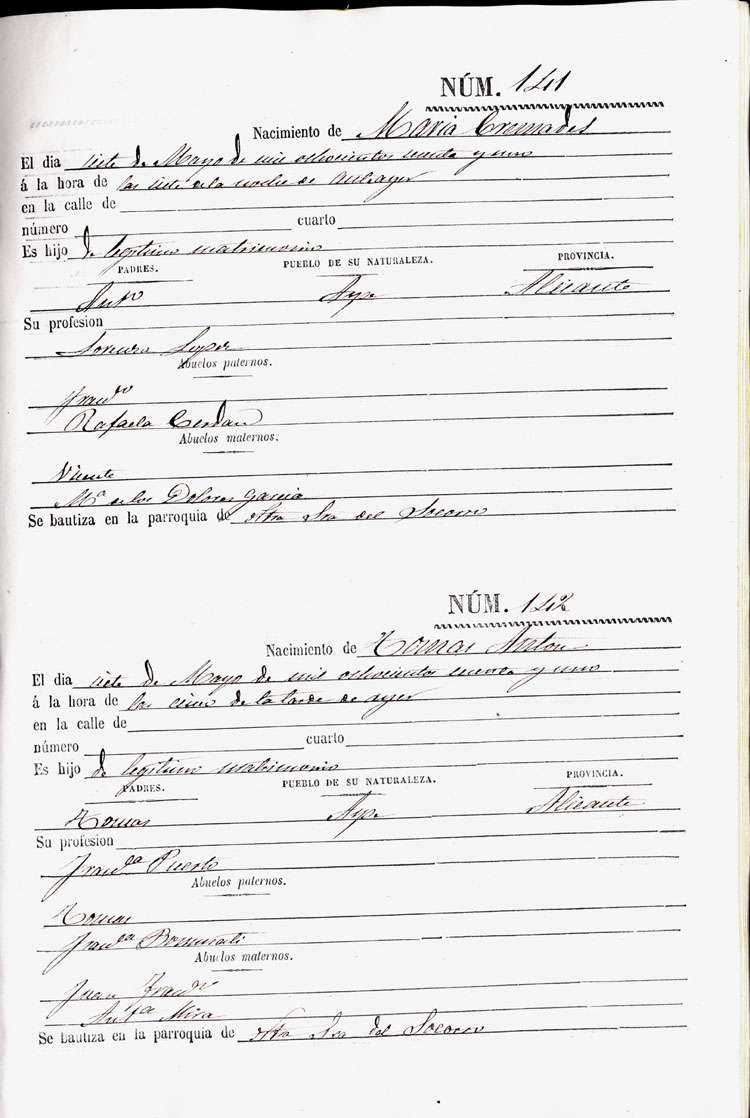 NÚM. 141
Nacimiento de Maria Cremades
El dia siete de Mayo de mil ochocientos sesenta y uno
á la hora de las siete de la noche de anteayer
en la calle de
número cuarto
Es hijo de legitimo matrimonio
PADRES. PUEBLO DE SU NATURALEZA. PROVINCIA.
Anto Aspe Alicante
Su profesion
Lorenza Lopez
Abuelos paternos.
Franco
Rafaela Cerdan
Abuelos maternos.
Vicente
Ma de los Dolores Garcia
Se bautiza en la parroquia de Ntra Sra del Socorro
NÚM. 142
Nacimiento de Tomas Anton
El dia siete de Mayo de mil ochocientos sesenta y uno
á la hora de las cinco de la tarde de ayer
en la calle de
número cuarto
Es hijo de legitimo matrimonio
PADRES. PUEBLO DE SU NATURALEZA. PROVINCIA.
Tomas Aspe Alicante
Su profesion
Franca Puerto
Abuelos paternos.
Tomas
Franca
Abuelos maternos.
Juan Franco
Anta Mira
Se bautiza en la parroquia de Ntra Sra del Socorro